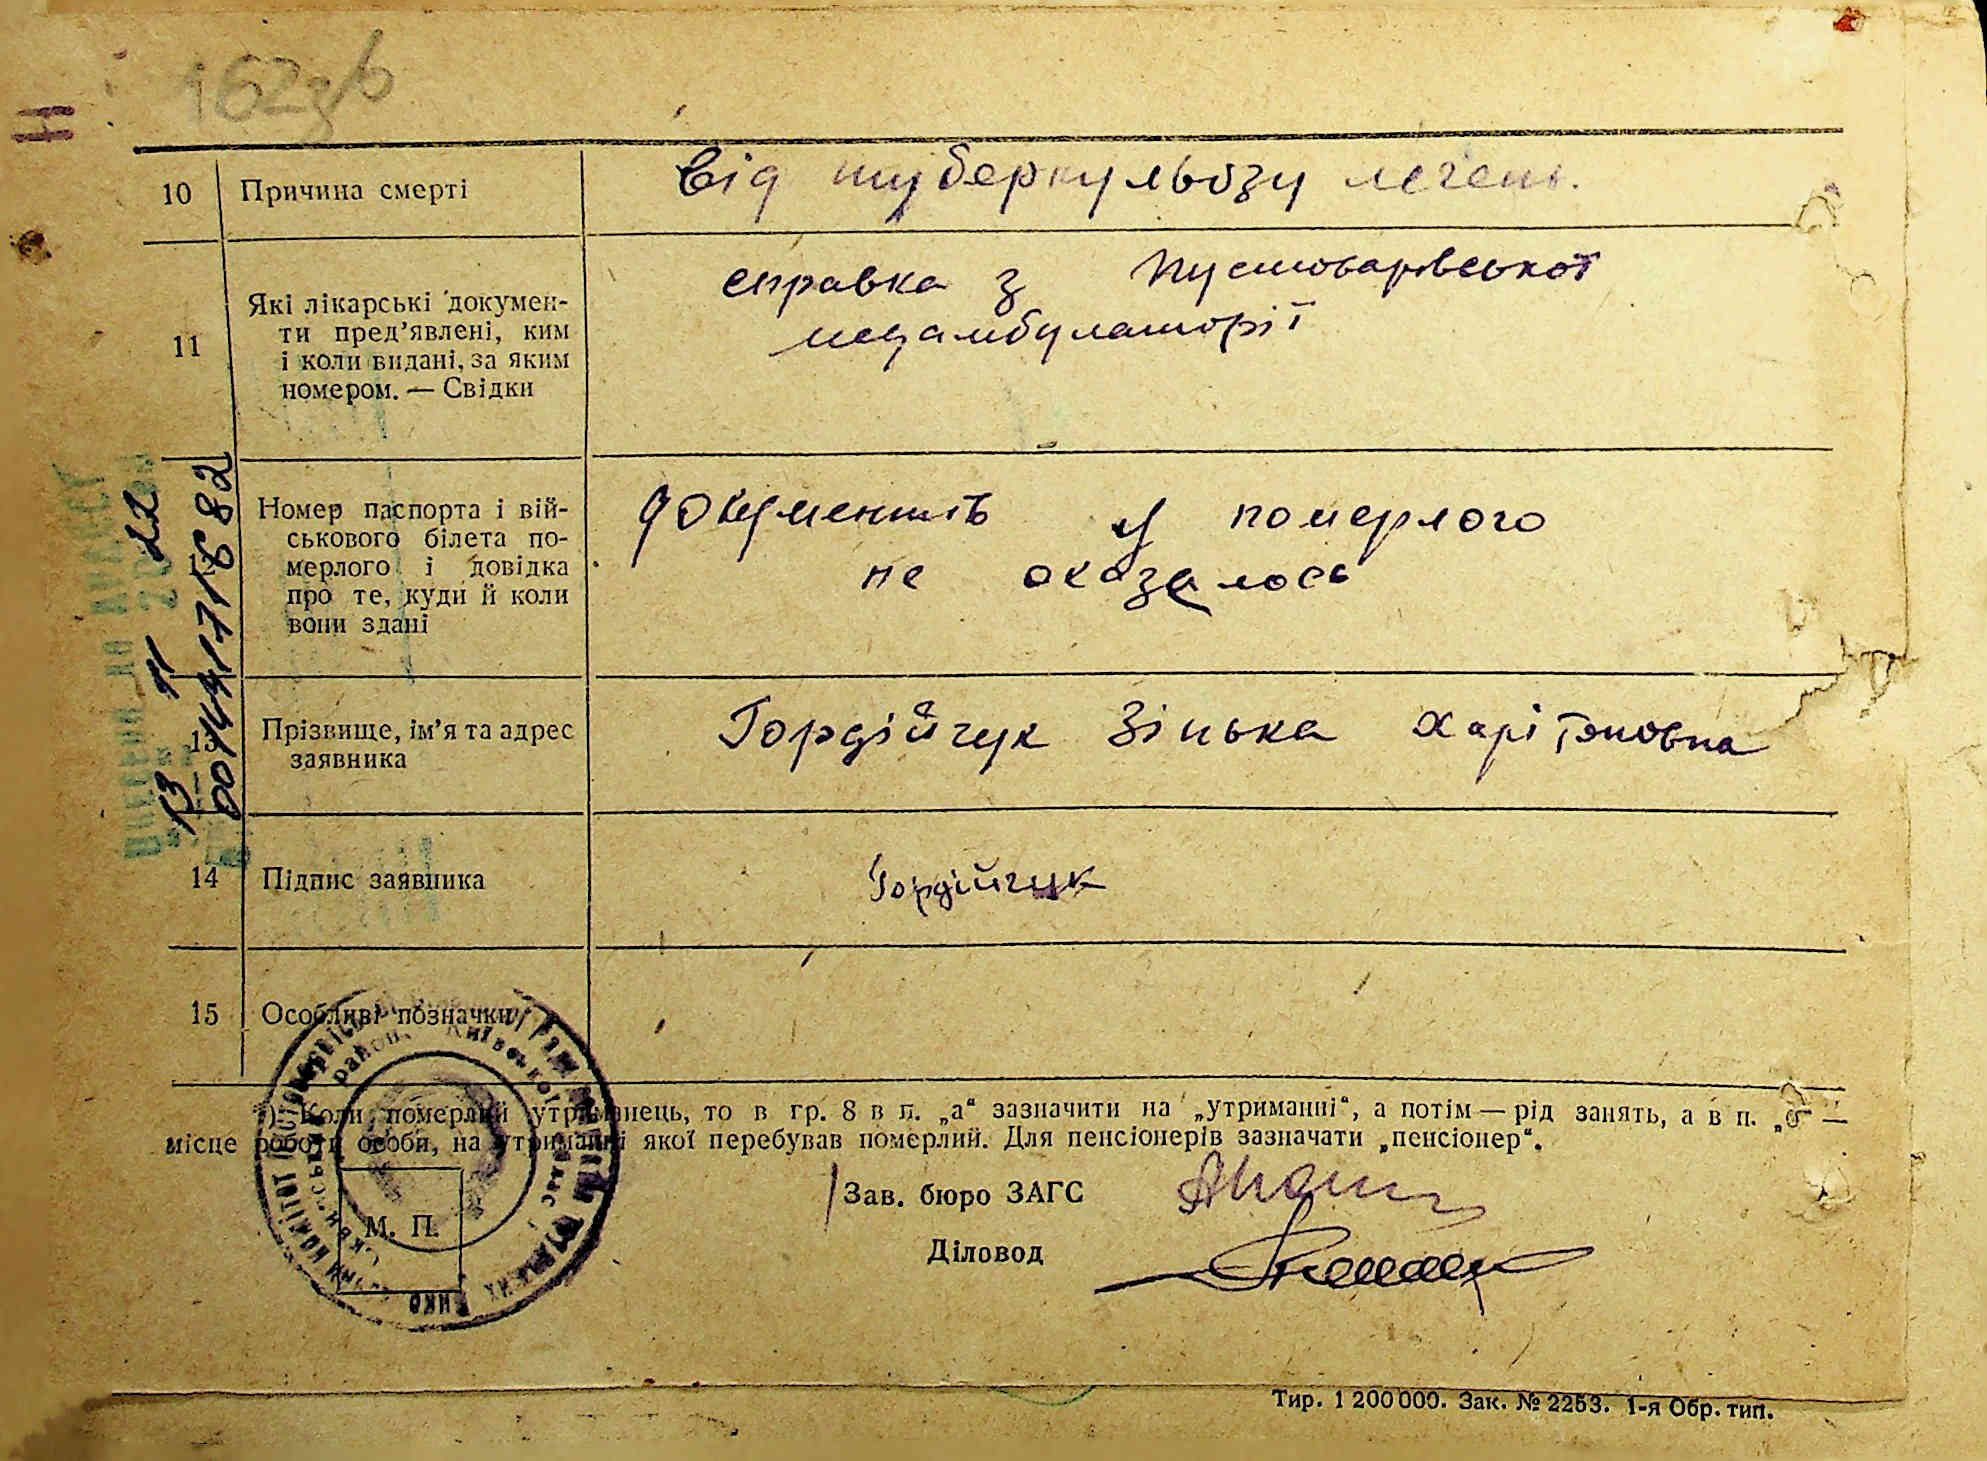 162
10 Причина смерті
Від туберкульозу легень.
11 Які лікарські докумен-
ти пред’явлені, ким
і коли видані, за яким
номером. — Свідки
справка з Пустоварівської
медамбулаторії
Номер паспорта і вій-
ськового білета по-
мерлого і довідка
про те, куди й коли
вони здані
документів у померлого
не оказалось
13 Прізвище, ім’я та адрес
заявника
Гордійчук Зінька Харітоновна
14 Підпис заявника
Гордійчук
15 Особливі позначки
*) Коли померлий утриманець, то в гр. 8 в п. „а“ зазначити на „утриманні“, а потім — рід занять, а в п. „б“ —
місце роботи особи, на утриманні якої перебував померлий. Для пенсіонерів зазначати „пенсіонер“.
Зав. бюро ЗАГС
М. П.
Діловод
Тир. 1 200 000. Зак. № 2253. 1-я Обр. тип.